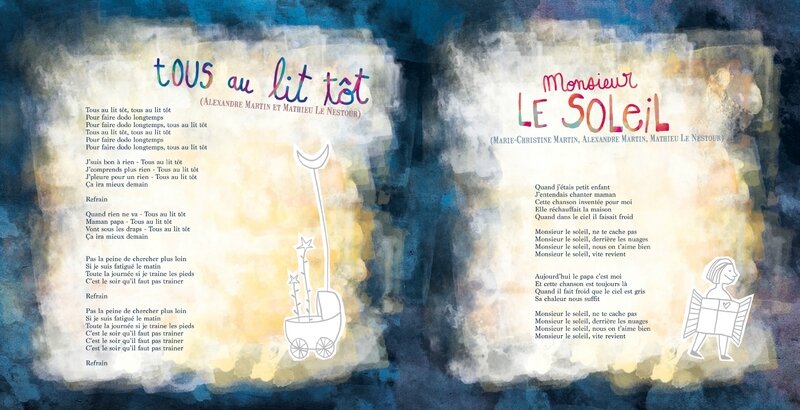 tous au lit tôt
(Alexandre Martin et Mathieu Le Nestour)
Tous au lit tôt, tous au lit tôt
Pour faire dodo longtemps
Pour faire dodo longtemps, tous au lit tôt
Tous au lit tôt, tous au lit tôt
Pour faire dodo longtemps
Pour faire dodo longtemps, tous au lit tôt
J'suis bon à rien - Tous au lit tôt
J'comprends plus rien - Tous au lit tôt
J'pleure pour un rien - Tous au lit tôt
Ça ira mieux demain
Refrain
Quand rien ne va - Tous au lit tôt
Maman papa - Tous au lit tôt
Vont sous les draps - Tous au lit tôt
Ça ira mieux demain
Pas la peine de chercher plus loin
Si je suis fatigué le matin
Toute la journée si je traine les pieds
C'est le soir qu'il faut pas trainer
Refrain
Pas la peine de chercher plus loin
Si je suis fatigué le matin
Toute la journée si je traine les pieds
C'est le soir qu'il faut pas trainer
C'est le soir qu'il faut pas trainer
Refrain
Monsieur
LE SOLEIL
(Marie-Christine Martin, Alexandre Martin, Mathieu Le Nestour)
Quand j'étais petit enfant
J'entendais chanter maman
Cette chanson inventée pour moi
Elle réchauffait la maison
Quand dans le ciel il faisait froid
Monsieur le soleil, ne te cache pas
Monsieur le soleil, derrière les nuages
Monsieur le soleil, nous on t'aime bien
Monsieur le soleil, vite revient
Aujourd'hui le papa c'est moi
Et cette chanson est toujours là
Quand il fait froid que le ciel est gris
Sa chaleur nous suffit
Monsieur le soleil, ne te cache pas
Monsieur le soleil, derrière les nuages
Monsieur le soleil, nous on t'aime bien
Monsieur le soleil, vite revient